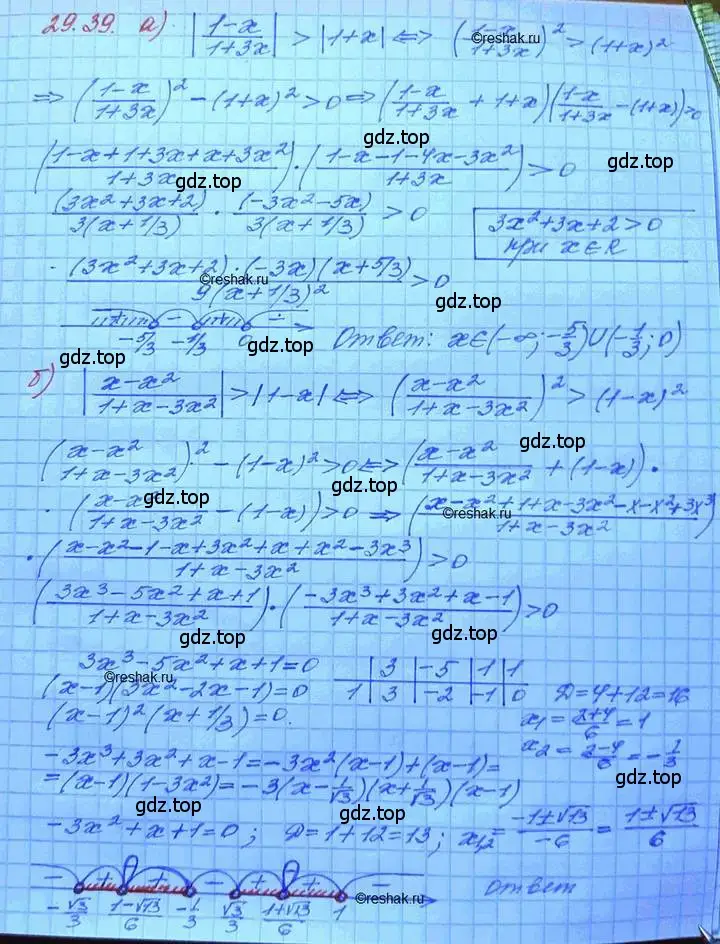 29.39. а) |(1-x)/(1+3x)| > |1+x| ⟺ ((1-x)/(1+3x))² > (1+x)²
⟹ ((1-x)/(1+3x))² - (1+x)² > 0 ⟺ ((1-x)/(1+3x) + 1+x)((1-x)/(1+3x) - (1+x)) > 0
gdz.top
((1-x+1+3x+x+3x²)/(1+3x)) · ((1-x-1-4x-3x²)/(1+3x)) > 0
gdz.top gdz.top
(3x²+3x+2)/(3(x+1/3)) · (-3x²-5x)/(3(x+1/3)) > 0 3x²+3x+2>0
при x∈R
· ((3x²+3x+2)·(-3x)(x+5/3))/(9(x+1/3)²) > 0
©reshak.ru gdz.top
+ - + -
-5/3 -1/3 0 Ответ: x∈(-∞; -5/3)∪(-1/3; 0)
gdz.top gdz.top
б) |(x-x²)/(1+x-3x²)| > |1-x| ⟺ ((x-x²)/(1+x-3x²))² > (1-x)²
gdz.top
((x-x²)/(1+x-3x²))² - (1-x)² > 0 ⟺ ((x-x²)/(1+x-3x²) + (1-x)) ·
gdz.top gdz.top ©reshak.ru
· ((x-x²)/(1+x-3x²) - (1-x)) > 0 ⟹ ((x-x²+1+x-3x²-x-x²+3x³)/(1+x-3x²))
· ((x-x²-1-x+3x²+x+x²-3x³)/(1+x-3x²)) > 0
((3x³-5x²+x+1)/(1+x-3x²)) · ((-3x³+3x²+x-1)/(1+x-3x²)) > 0
gdz.top gdz.top
3x³-5x²+x+1=0 3 -5 1 1
©reshak.ru
(x-1)(3x²-2x-1)=0 1 3 -2 -1 0 D=4+12=16
(x-1)²(x+1/3)=0. x₁=(2+4)/6=1
x₂=(2-4)/6=-1/3
-3x³+3x²+x-1=-3x²(x-1)+(x-1)=
gdz.top
=(x-1)(1-3x²)=-3(x-1/√3)(x+1/√3)(x-1)
gdz.top
-3x²+x+1=0; D=1+12=13; x₁,₂=(-1±√13)/-6=(1±√13)/6
gdz.top gdz.top
- + + - + + - ©reshak.ru Ответ
-√3/3 (1-√13)/6 -1/3 √3/3 (1+√13)/6 1